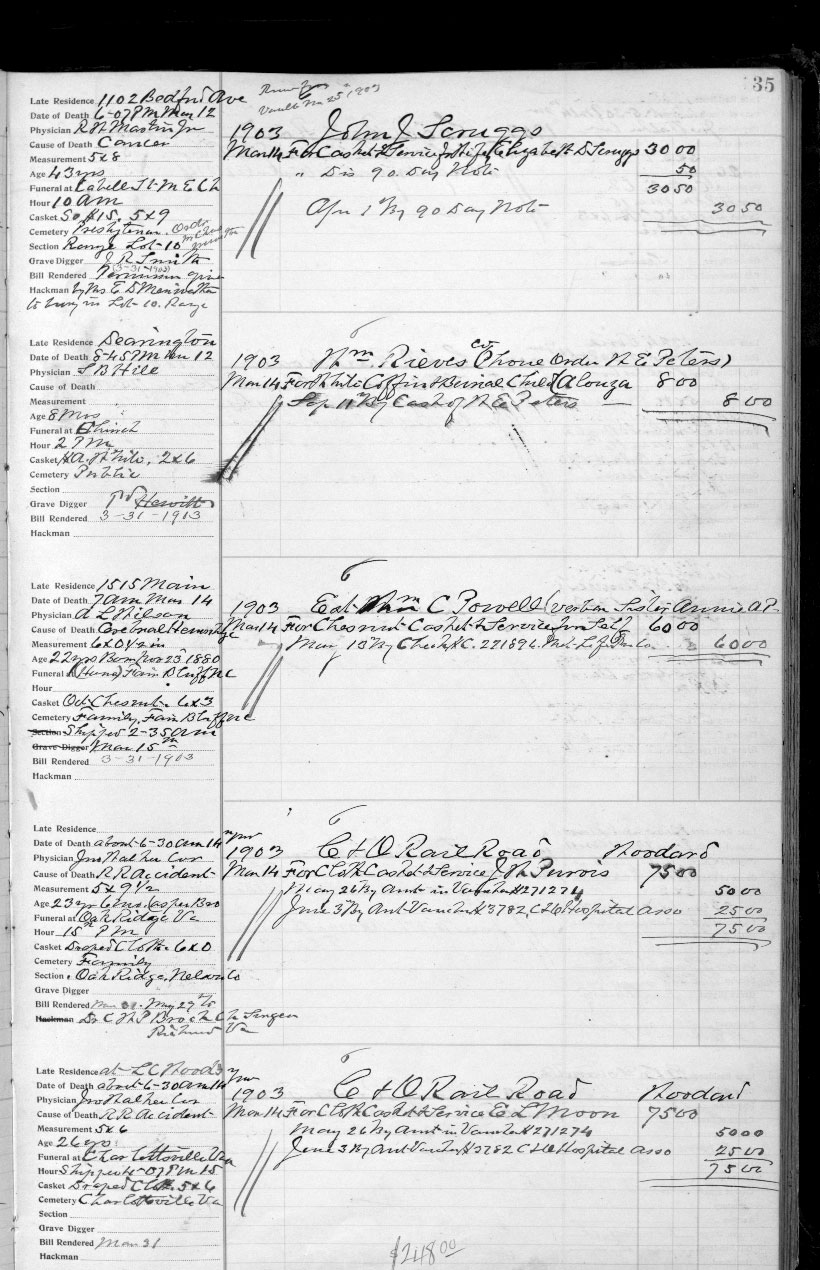 35
Late Residence 1102 Bedford Ave
Date of Death 6-07 PM Mar 12
Physician R W Martin Jr
Cause of Death Cancer
Measurement 5x8
Age 43 yrs
Funeral at Cabell St. M E Ch
Hour 10 am
Casket So #15. 5x9
Cemetery Presbyterian
Section Range Lot-10
Grave Digger J R Smith
(3-31-1903)
Bill Rendered Permission given
Hackman by Mrs E D Meriwether
to bury in Lot 10. Range
1903 John J Scruggs
Mar 14 For Casket & Service for Wife Elizabeth D Scruggs 30 00
" Dis 90 Day Note 50
30 50
Apr 1st By 90 Day Note 30 50
Late Residence Dearington
Date of Death 8-45 PM Mar 12
Physician S B Hill
Cause of Death
Measurement
Age 8 Mos
Funeral at Church
Hour 2 PM
Casket White, 2x6
Cemetery Public
Section
Grave Digger Pd Hewitt
Bill Rendered 3-31-1903
Hackman
1903 Wm. Rieves Col (Phone Order W E Peters)
Mar 14 For White Coffin & Burial Child (Alonza 8 00
Sep 11th By Cash of W E Peters 8 00
Late Residence 1515 Main
Date of Death 7 am Mar 14
Physician A L Wilson
Cause of Death Cerebral Hemorrhage
Measurement
Age 22 yrs Born Nov 23 1880
Funeral at (Home) Fair Bluff NC
Hour
Casket Oct Chesnut. 6x3
Cemetery Family, Fair Bluff NC
Section Shipped 2-35 am
Grave Digger Mar 15th
Bill Rendered 3-31-1903
Hackman
1903 Est Wm C Powell (verbon Sister Annie A P.
Mar 14 For Chesnut Casket & Service for Self 60 00
May 13th By Check 221894. Met Life Ins Co 60 00
Late Residence
Date of Death about 6-30 am 14
Physician Jno Walker Cor
Cause of Death R R Accident
Measurement 5x9 1/2
Age 23 yrs 6 mo. as per Bro
Funeral at Oak Ridge Va
Hour 15th PM
Casket Draped Cloth 6x0
Cemetery Family
Section Oak Ridge, Nelson Co
Grave Digger
Bill Rendered Mar 31. May 29th to
Hackman Dr C W P Brock Ch Surgeon
Richmond Va
1903 C & O Rail Road Woodard
Mar 14 For Cloth Casket & Service J W Purvis 75 00
May 26 By Amt in Voucher #271274 50 00
June 3rd By Amt Voucher #3782 C & O Hospital Asso 25 00
75 00
Late Residence at L C Woods
Date of Death about 6-30 am 14
Physician Jno Walker Cor
Cause of Death R R Accident
Measurement 5x6
Age 26 yrs
Funeral at Charlottesville Va
Hour Shipped 4-07 PM 15
Casket Draped Cloth 5x6
Cemetery Charlottesville Va
Section
Grave Digger
Bill Rendered Mar 31
Hackman
1903 C & O Rail Road Woodard
Mar 14 For Cloth Casket & Service E L Moon 75 00
May 26 By Amt in Voucher #271274 50 00
June 3 By Amt Voucher #3782 C & O Hospital Asso 25 00
75 00
$248 00